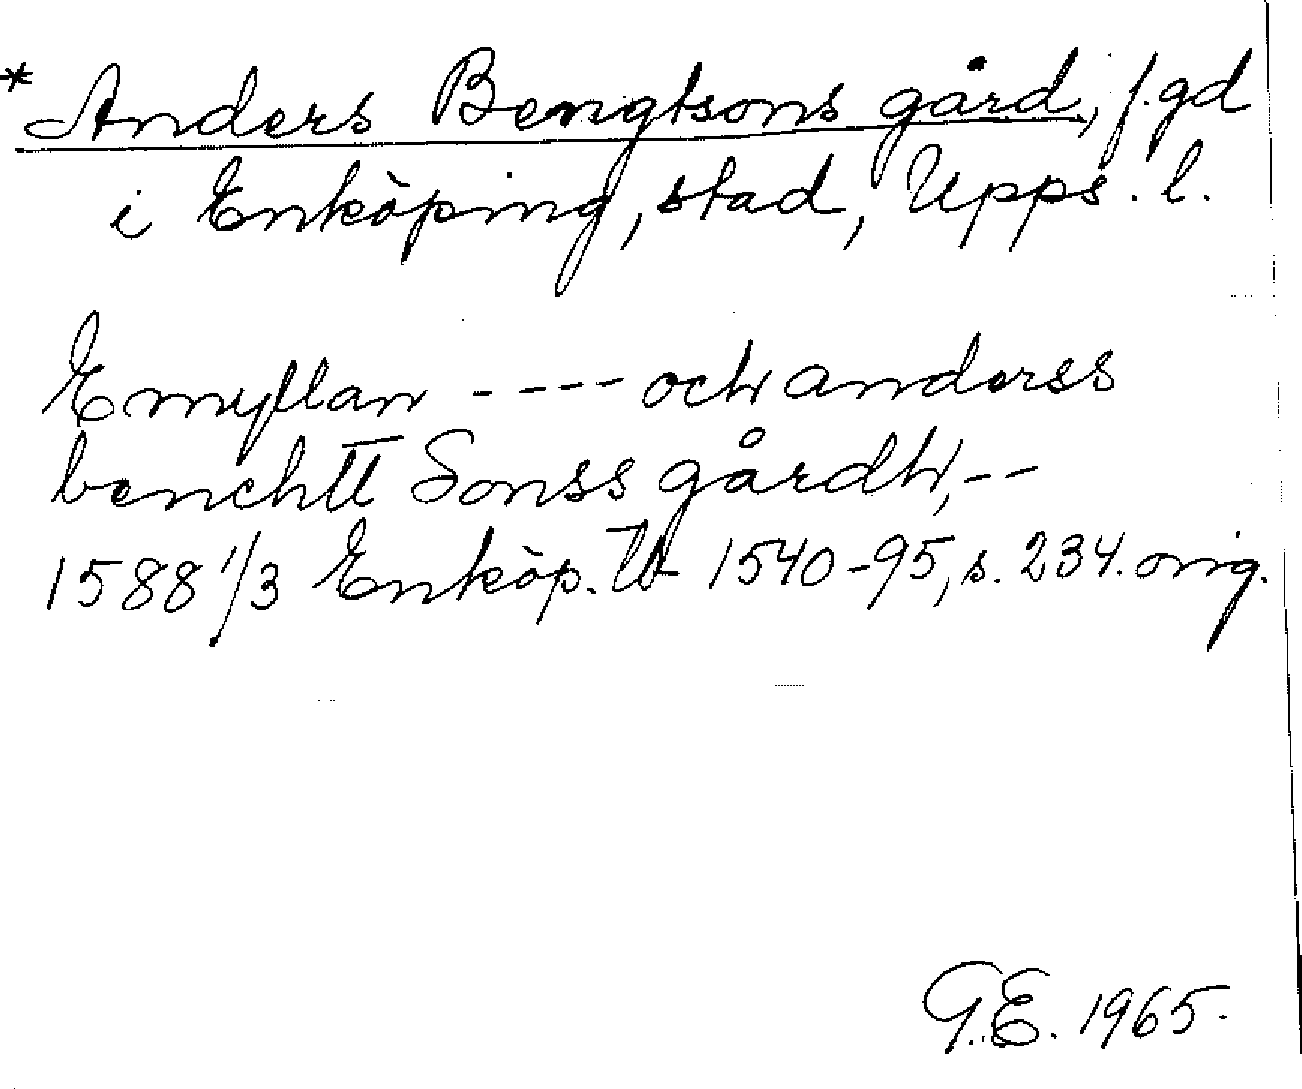 * Anders Bengtsons gård, f.gd
i Enköping, stad, Upps. l.
Emyllan ---- och anderss
benchtt Sonss gårdh, --
1588 1/3 Enköp. tb 1540-95, s. 234. orig.
G.E. 1965.